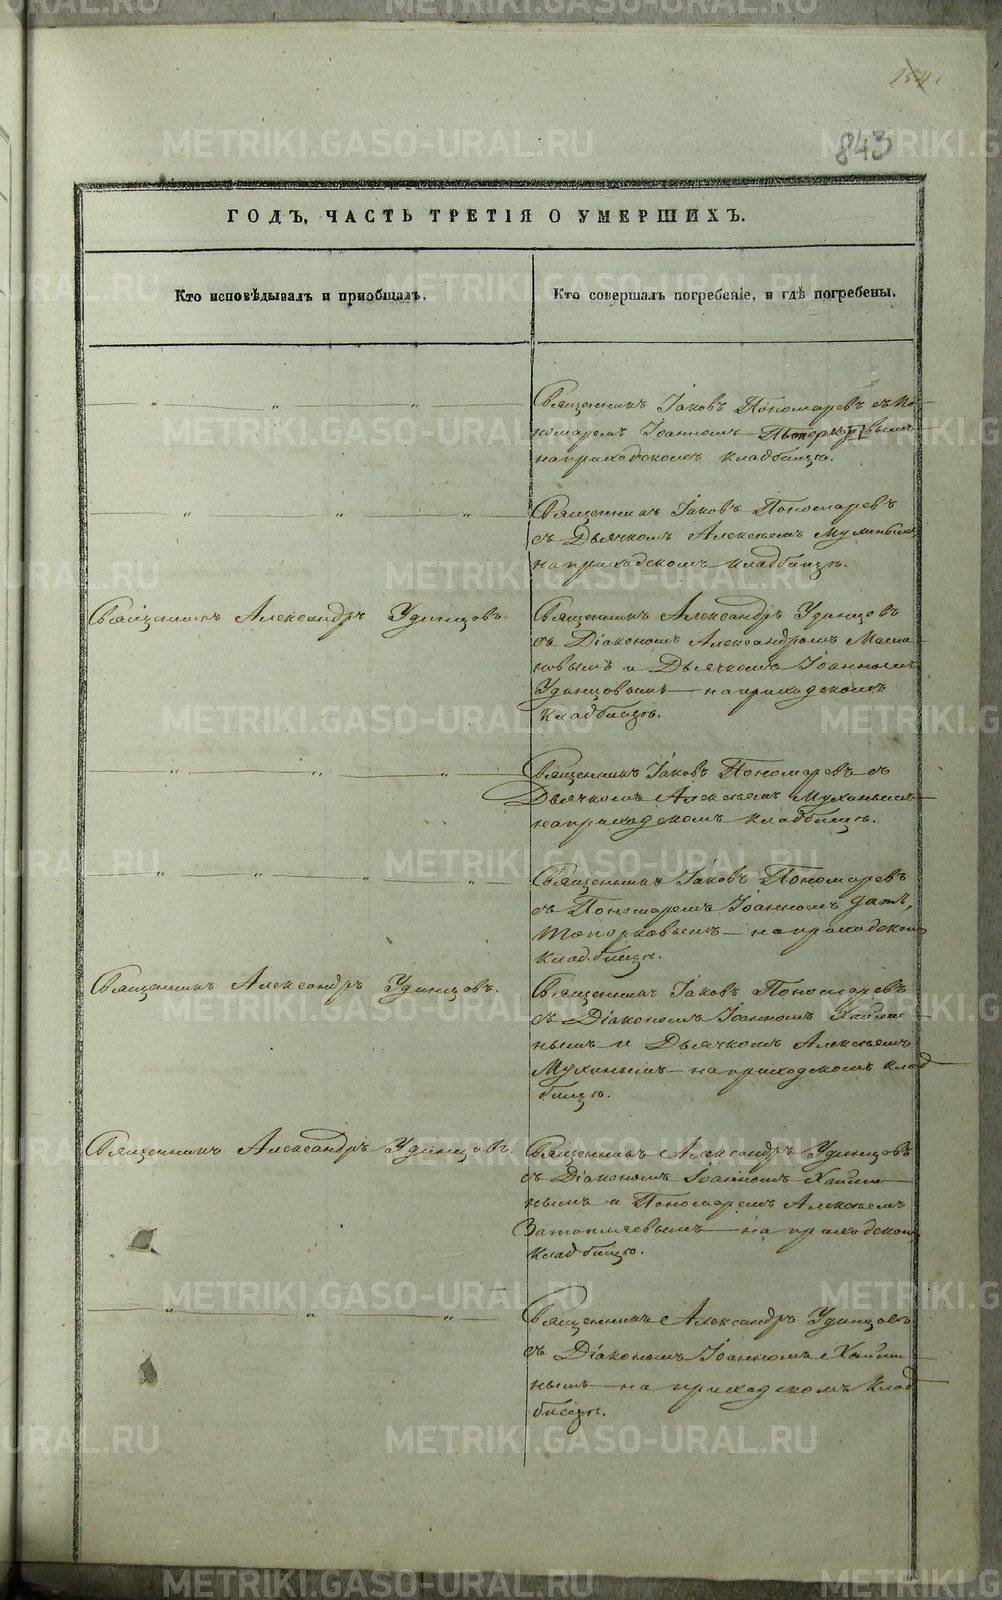 843
ГОДЪ, ЧАСТЬ ТРЕТІЯ О УМЕРШИХЪ.
Кто исповѣдывалъ и пріобщалъ.
Кто совершалъ погребеніе, и гдѣ погребены.
Священникъ Іаковъ Пономаревъ съ По-
номаремъ Іоанномъ
на приходскомъ кладбищѣ.
Священникъ Іаковъ Пономаревъ
съ Дьячкомъ Алексѣемъ Мухинымъ
на приходскомъ кладбищѣ.
Священникъ Александръ Удинцовъ.
Священникъ Александръ Удинцовъ
съ Діакономъ Александромъ
новымъ и Дьячкомъ Іоанномъ
Удинцовымъ – на приходскомъ
кладбищѣ.
Священникъ Іаковъ Пономаревъ съ
Дьячкомъ Алексѣемъ Мухинымъ –
на приходскомъ кладбищѣ.
Священникъ Іаковъ Пономаревъ
съ Пономаремъ Іоанномъ
Топорковымъ – на приходском
кладбищѣ.
Священникъ Александръ Удинцовъ.
Священникъ Іаковъ Пономаревъ
съ Діакономъ Іоанномъ
нымъ и Дьячкомъ Алексѣемъ
Мухинымъ – на приходскомъ клад
бищѣ.
Священникъ Александръ Удинцовъ.
Священникъ Александръ Удинцовъ
съ Діакономъ Іоанномъ
нымъ и Пономаремъ Алексѣемъ
Затопляевымъ – на приходском
кладбищѣ.
Священникъ Александръ Удинцовъ
съ Діакономъ Іоанномъ
нымъ – на приходскомъ клад
бищѣ.
METRIKI.GASO-URAL.RU